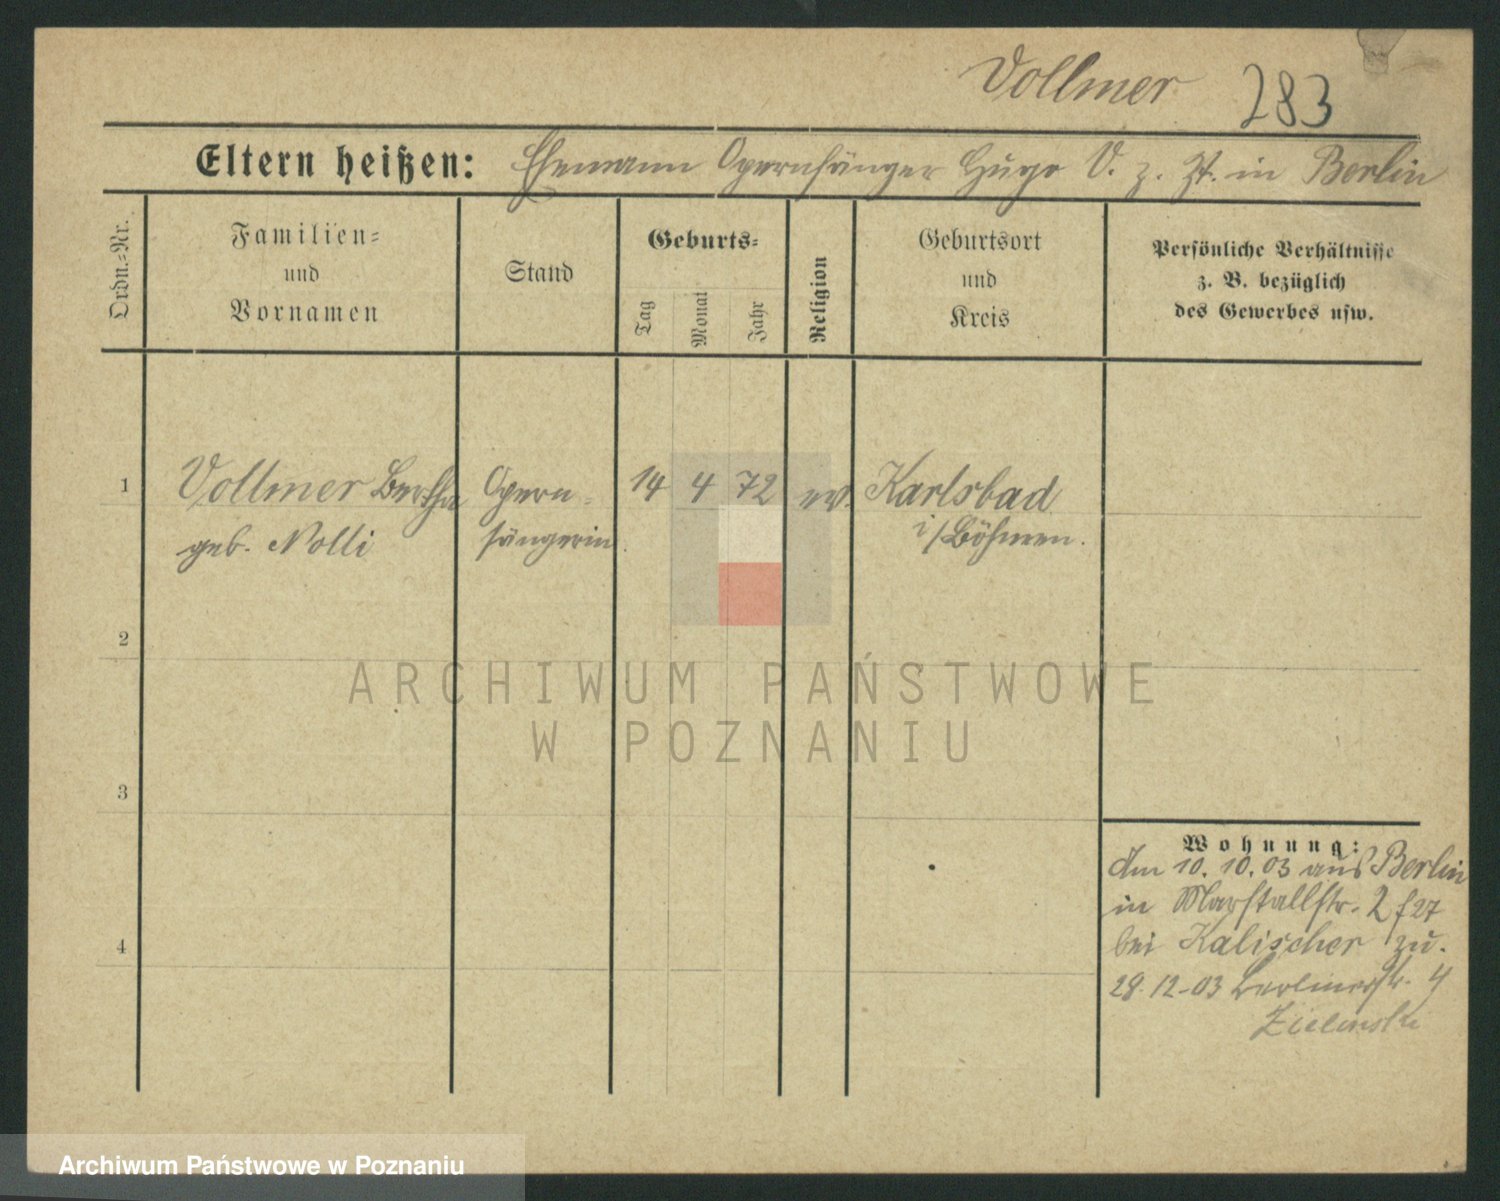 Vollmer 283
Eltern heißen: Ehemann Opernsänger Hugo V. z. Zt. in Berlin
Ordn.-Nr.
Familien-
und
Vornamen
Stand
Geburts-
Tag
Monat
Jahr
Religion
Geburtsort
und
Kreis
Persönliche Verhältnisse
z. B. bezüglich
des Gewerbes usw.
1 Vollmer Bertha Opern- 14 4 72 ev. Karlsbad
geb. Nolli sängerin i/Böhmen.
2
ARCHIWUM PAŃSTWOWE
W POZNANIU
3
Wohnung:
Am 10. 10. 03 aus Berlin
in Marstallstr. 2 f 27
4
bei Kalischer zu.
29. 12-03 Berlinerstr. 4
Zielinski
Archiwum Państwowe w Poznaniu